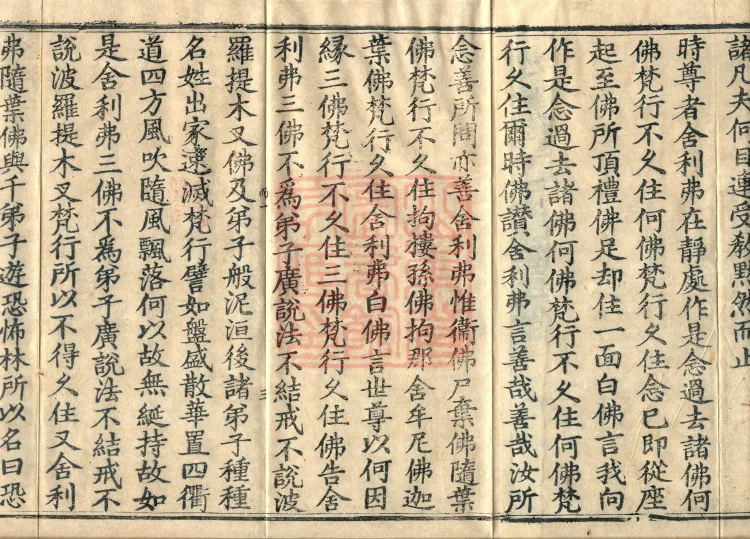 諸凡夫何目連受教黙然而止
時尊者舍利弗在靜處作是念過去諸佛何
佛梵行不久住何佛梵行久住念已即從座
起至佛所頂禮佛足却住一面白佛言我向
作是念過去諸佛何佛梵行不久住何佛梵
行久住爾時佛讃舍利弗言善哉善哉汝所
念善所問亦善舍利弗惟衛佛尸棄佛隨葉
佛梵行不久住拘樓孫佛拘那舍牟尼佛迦
葉佛梵行久住舍利弗白佛言世尊以何因
縁三佛梵行不久住三佛梵行久住佛告舍
利弗三佛不爲弟子廣說法不結戒不說波
三
羅提木叉佛及弟子般泥洹後諸弟子種種
名姓出家速滅梵行譬如盤盛散華置四衢
道四方風吹隨風飄落何以故無綖持故如
是舍利弗三佛不爲弟子廣說法不結戒不
說波羅提木叉梵行所以不得久住又舍利
弗隨葉佛與千弟子遊恐怖林所以名曰恐